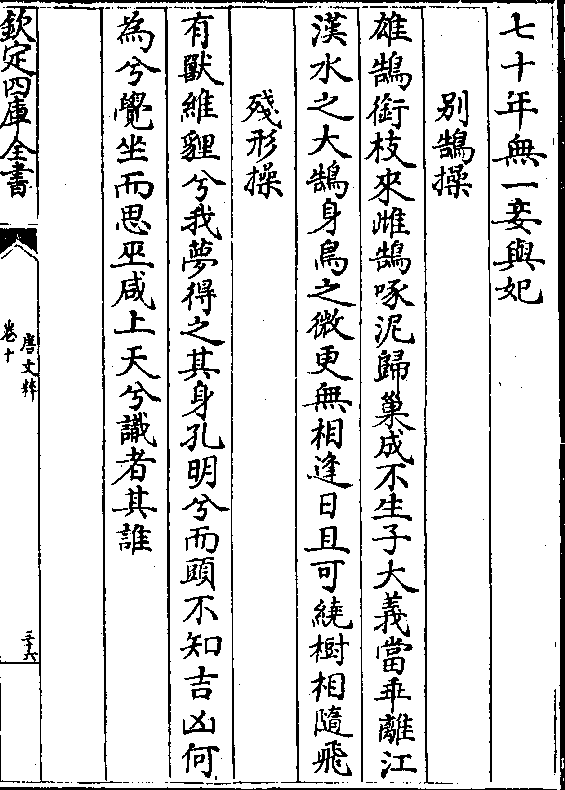 七十年無一妾與妃
别鵠操
雄鵠銜枝來雌鵠啄泥歸巢成不生子大義當乖離江
漢水之大鵠身鳥之微更無相逢日且可繞樹相隨飛
殘形操
有獸維貍兮我夢得之其身孔明兮而頭不知吉凶何
為兮覺坐而思巫咸上天兮識者其誰
欽定四庫全書
唐文粹
卷十
三六